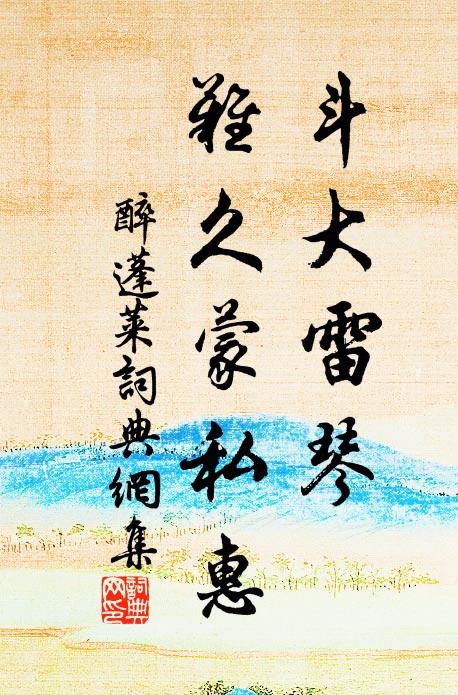 斗大雷琴
難久蒙私惠
醉蓬莱詞典網集
詞典